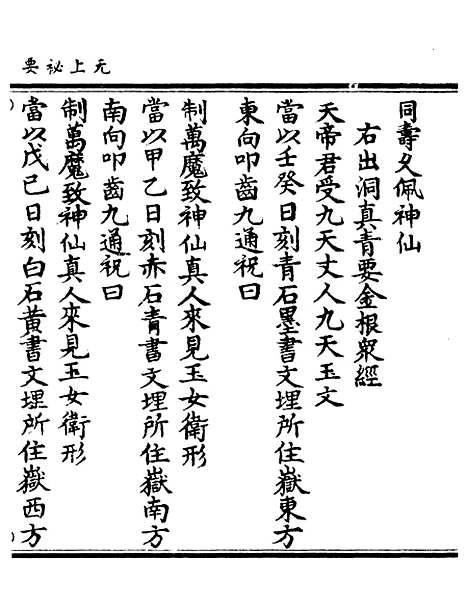 无上祕要
同壽久佩神仙
右出洞真青要金根衆經
天帝君受九天丈人九天玉文
當以壬癸日刻青石墨書文埋所住嶽東方
東向叩齒九通祝曰
制萬魔致神仙真人來見玉女衛形
當以甲乙日刻赤石青書文埋所住嶽南方
南向叩齒九通祝曰
制萬魔致神仙真人來見玉女衛形
當以戊己日刻白石黃書文埋所住嶽西方